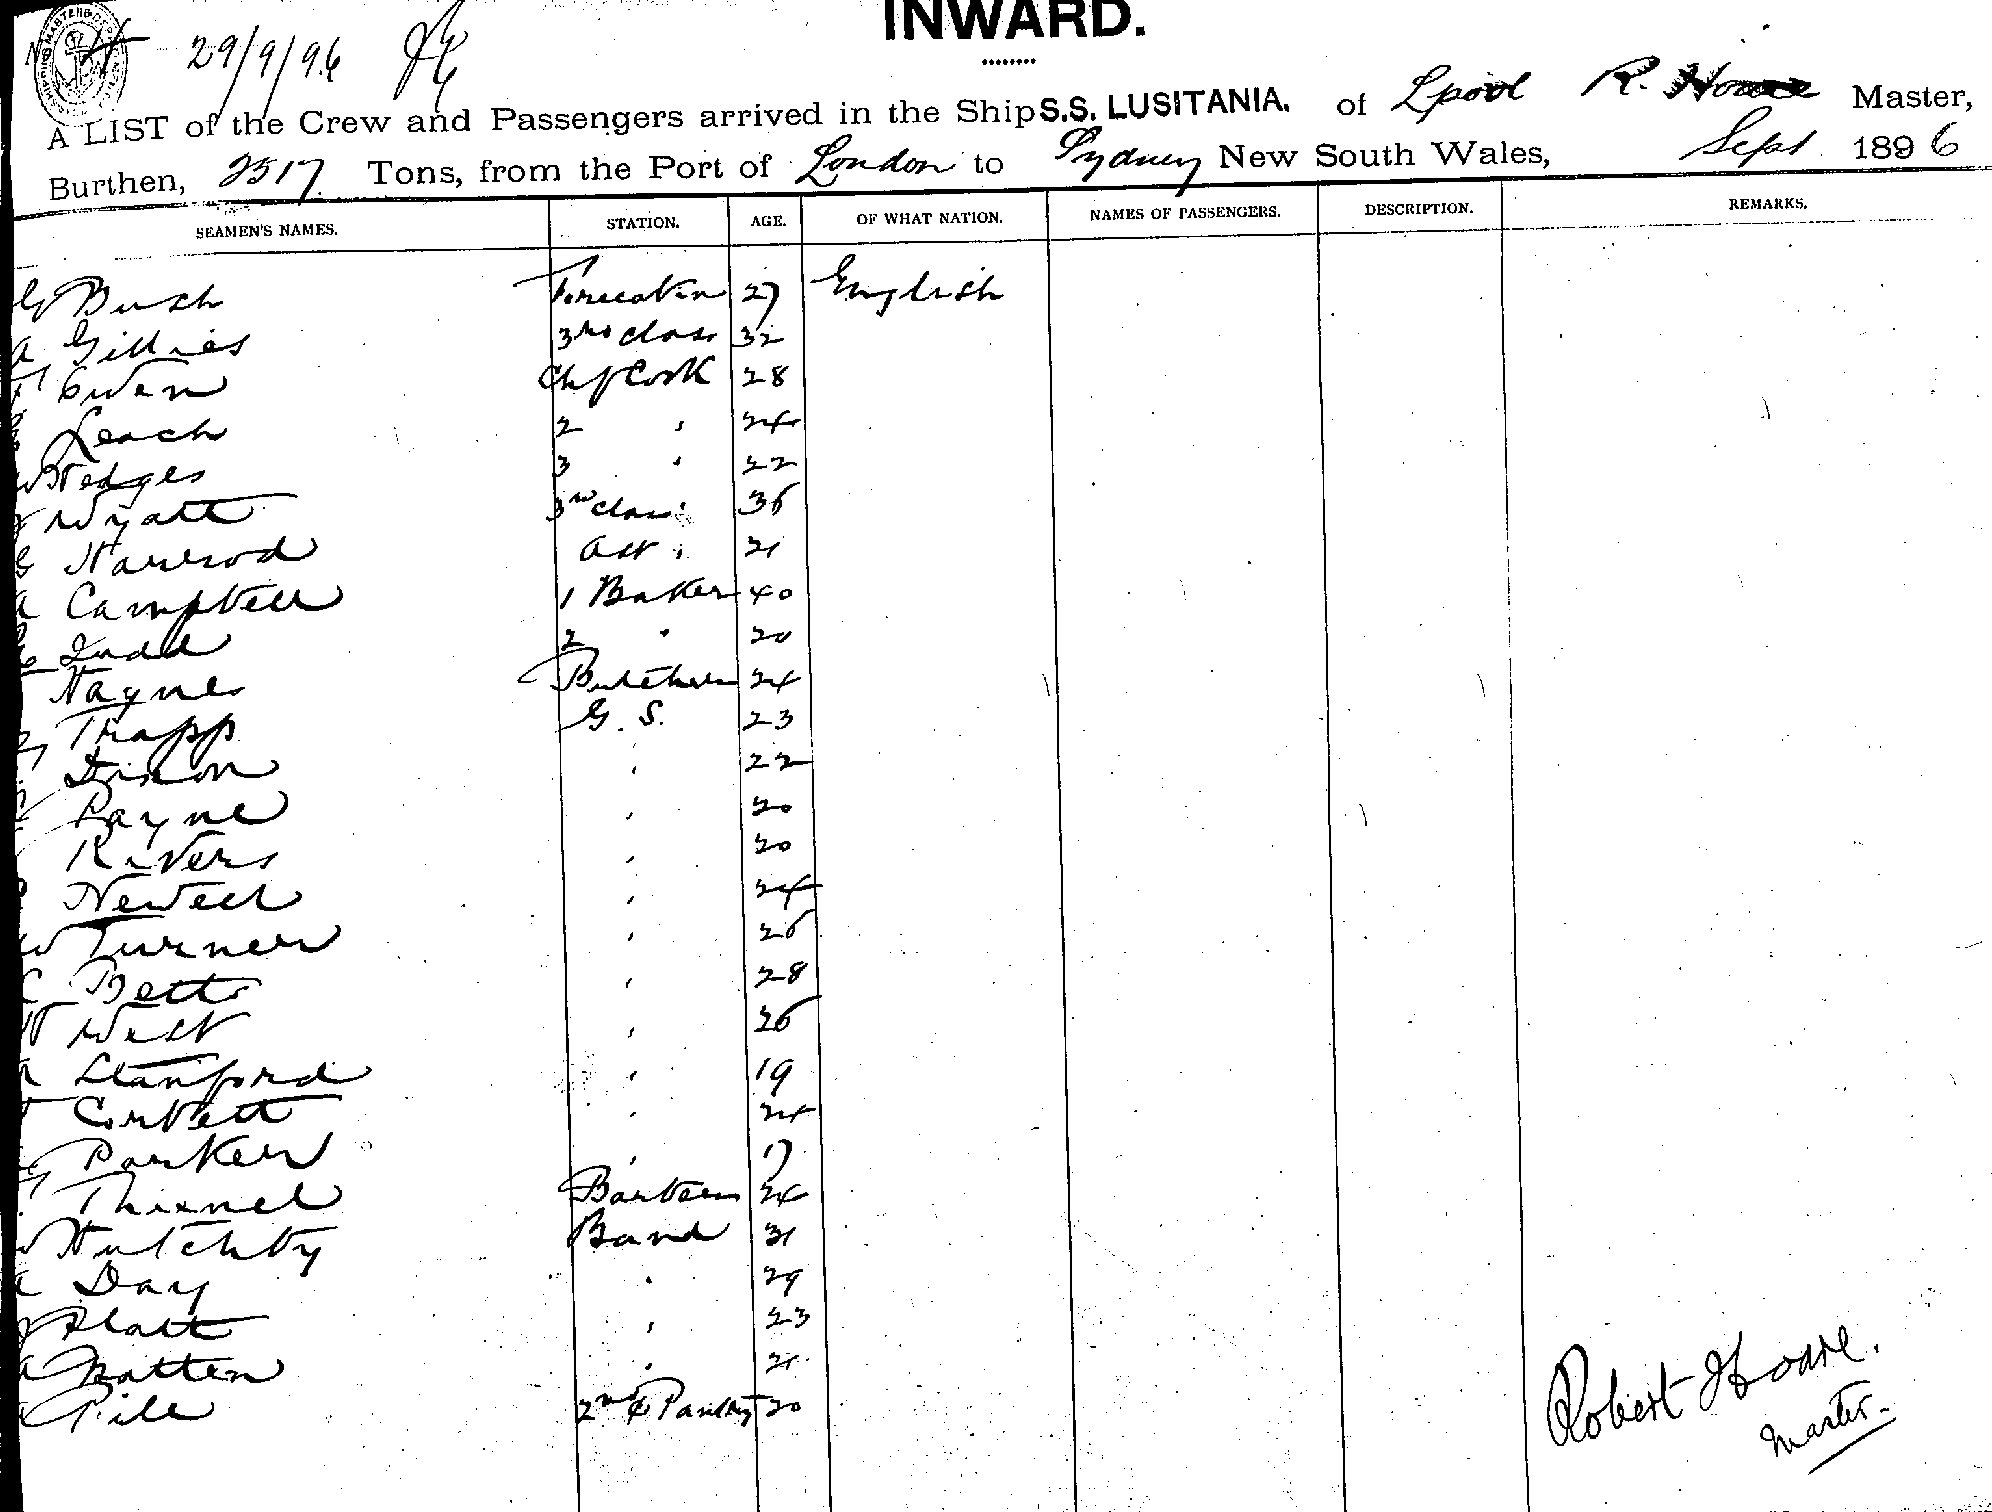 INWARD.
29/9/96
A LIST of the Crew and Passengers arrived in the Ship S.S. LUSITANIA. of Lpool R. Hoare Master,
Burthen, 2517 Tons, from the Port of London to Sydney New South Wales, Sept 1896
SEAMEN'S NAMES. STATION. AGE. OF WHAT NATION. NAMES OF PASSENGERS. DESCRIPTION. REMARKS.
G Bush 27 English
A Gillies 3rd class 32
Owen Chf Cook 28
Leach 2 " 24
W Hedges 3 " 22
J Wyatt 3rd class 36
G Harrod Ast " 21
A Campbell 1 Baker 40
Judd 2 " 20
Haynes Butcher 24
Trapp G. S. 23
Dixon " 22
Payne " 20
Rivers " 20
Newell " 24
W Turner " 26
C Betts " 28
H West " 26
A Stanford " 19
T Corbett " 24
G Parker " 17
Thienel Barber 24
W Hutchby Band 31
A Day " 29
J Platt " 23
A Matten " 21
Pile 2nd Pantry 20
Robert Hoare.
Master.